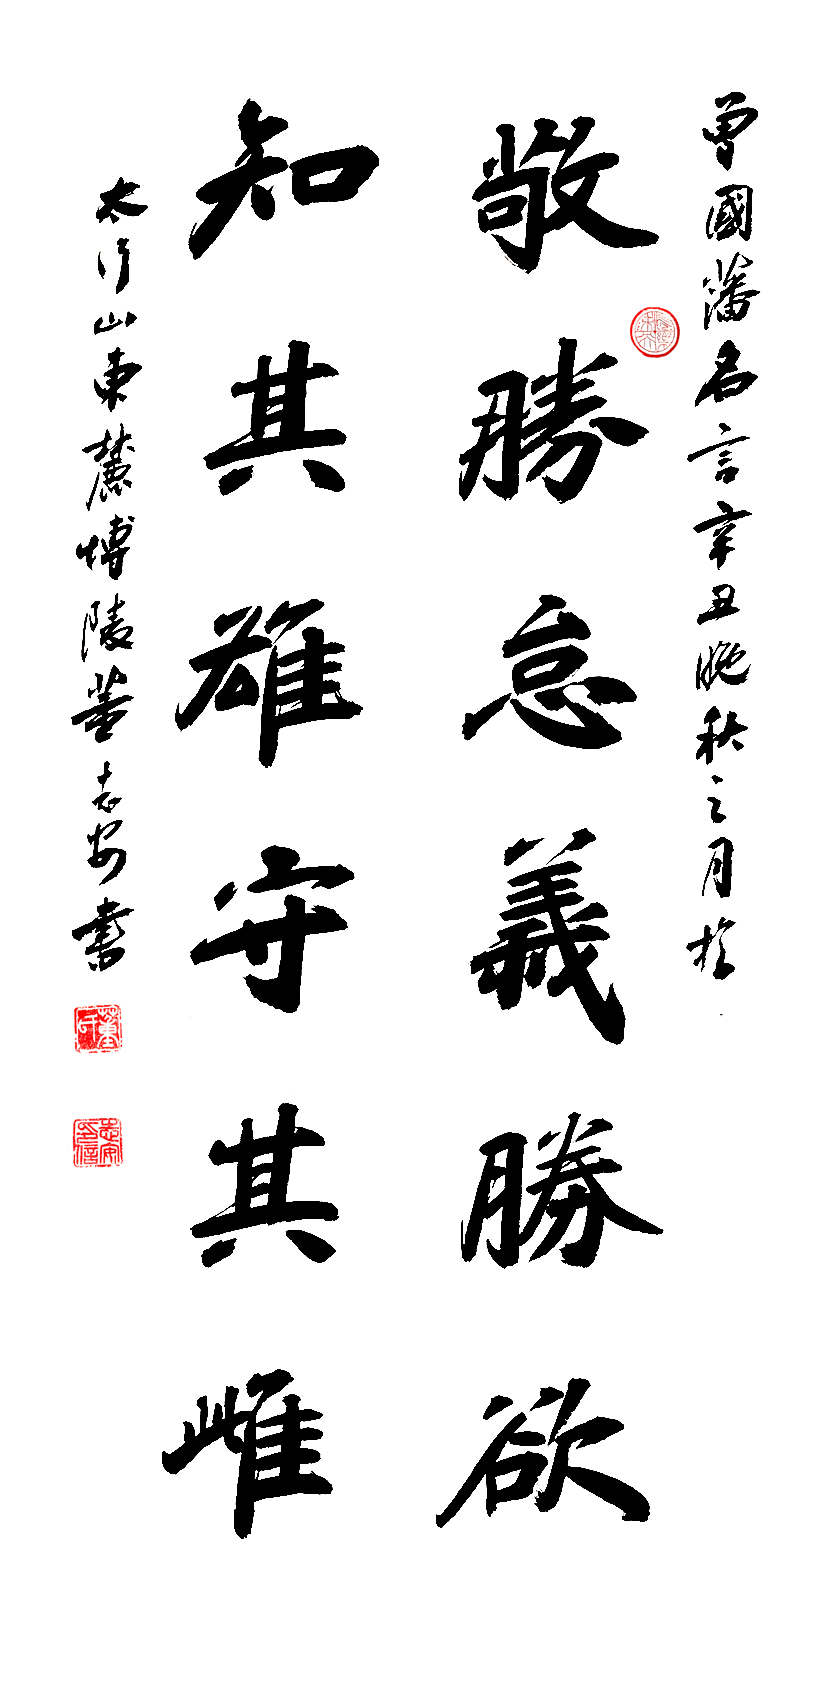 曾國藩名言辛丑晚秋之月於
敬勝怠義勝欲
知其雄守其雌
太行山東麓博陵董志安書
董
志安印信